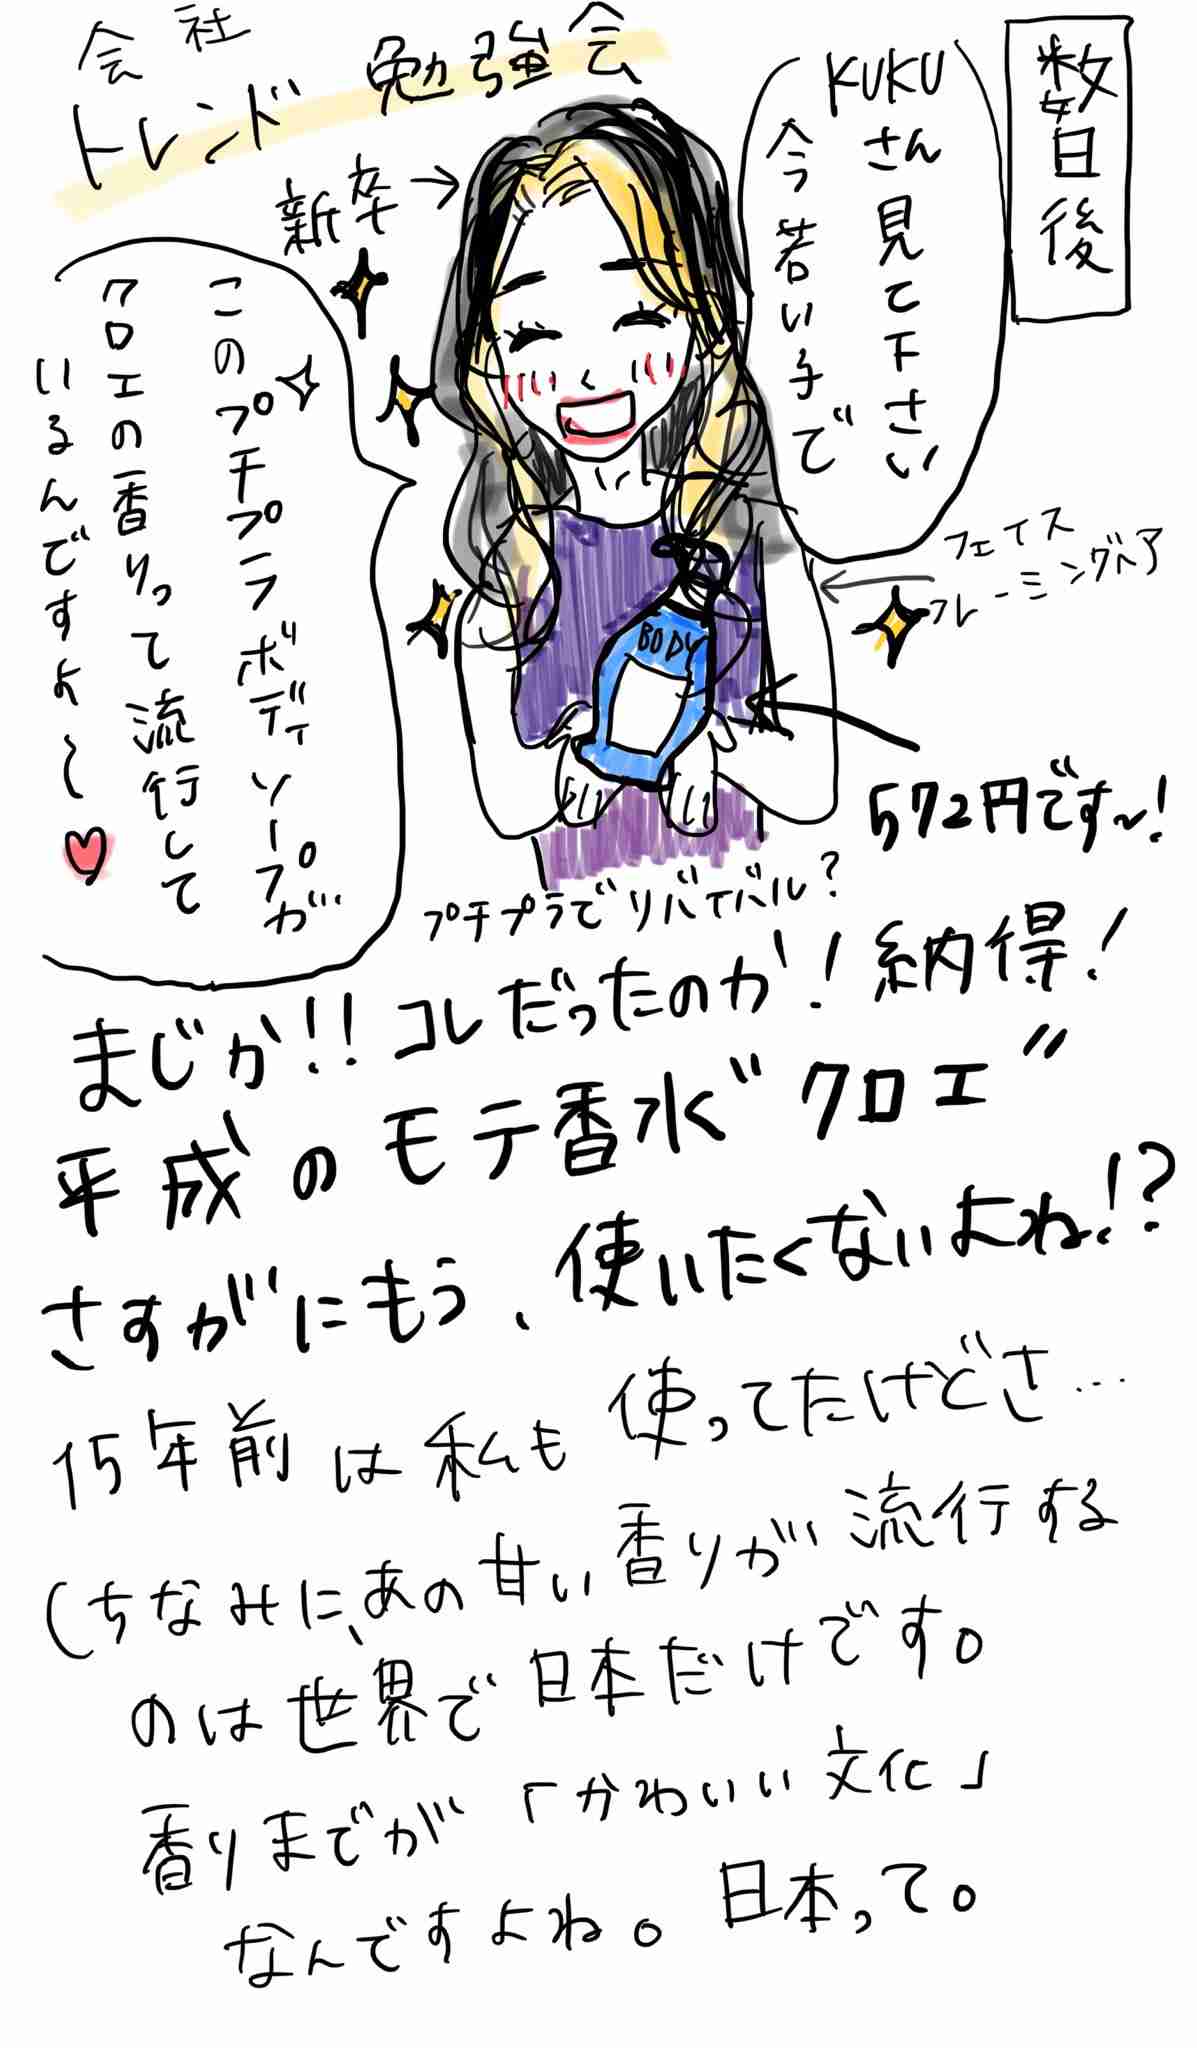 数日後
会社
トレンド勉強会
KUKU
さん見て下さい
今若い子で
新卒→
このプチプラボディソープが…
クロエの香りって流行して
いるんですよ～♥
フェイス
フレーミングヘア
BODY
572円です~!
プチプラでリバイバル?
まじか!!コレだったのか!納得!
平成のモテ香水"クロエ"
さすがにもう、使いたくないよね!?
15年前は私も使ってたけどさ…
(ちなみに、あの甘い香りが流行する
のは世界で日本だけです。
香りまでが「かわいい文化」
なんですよね。日本って。